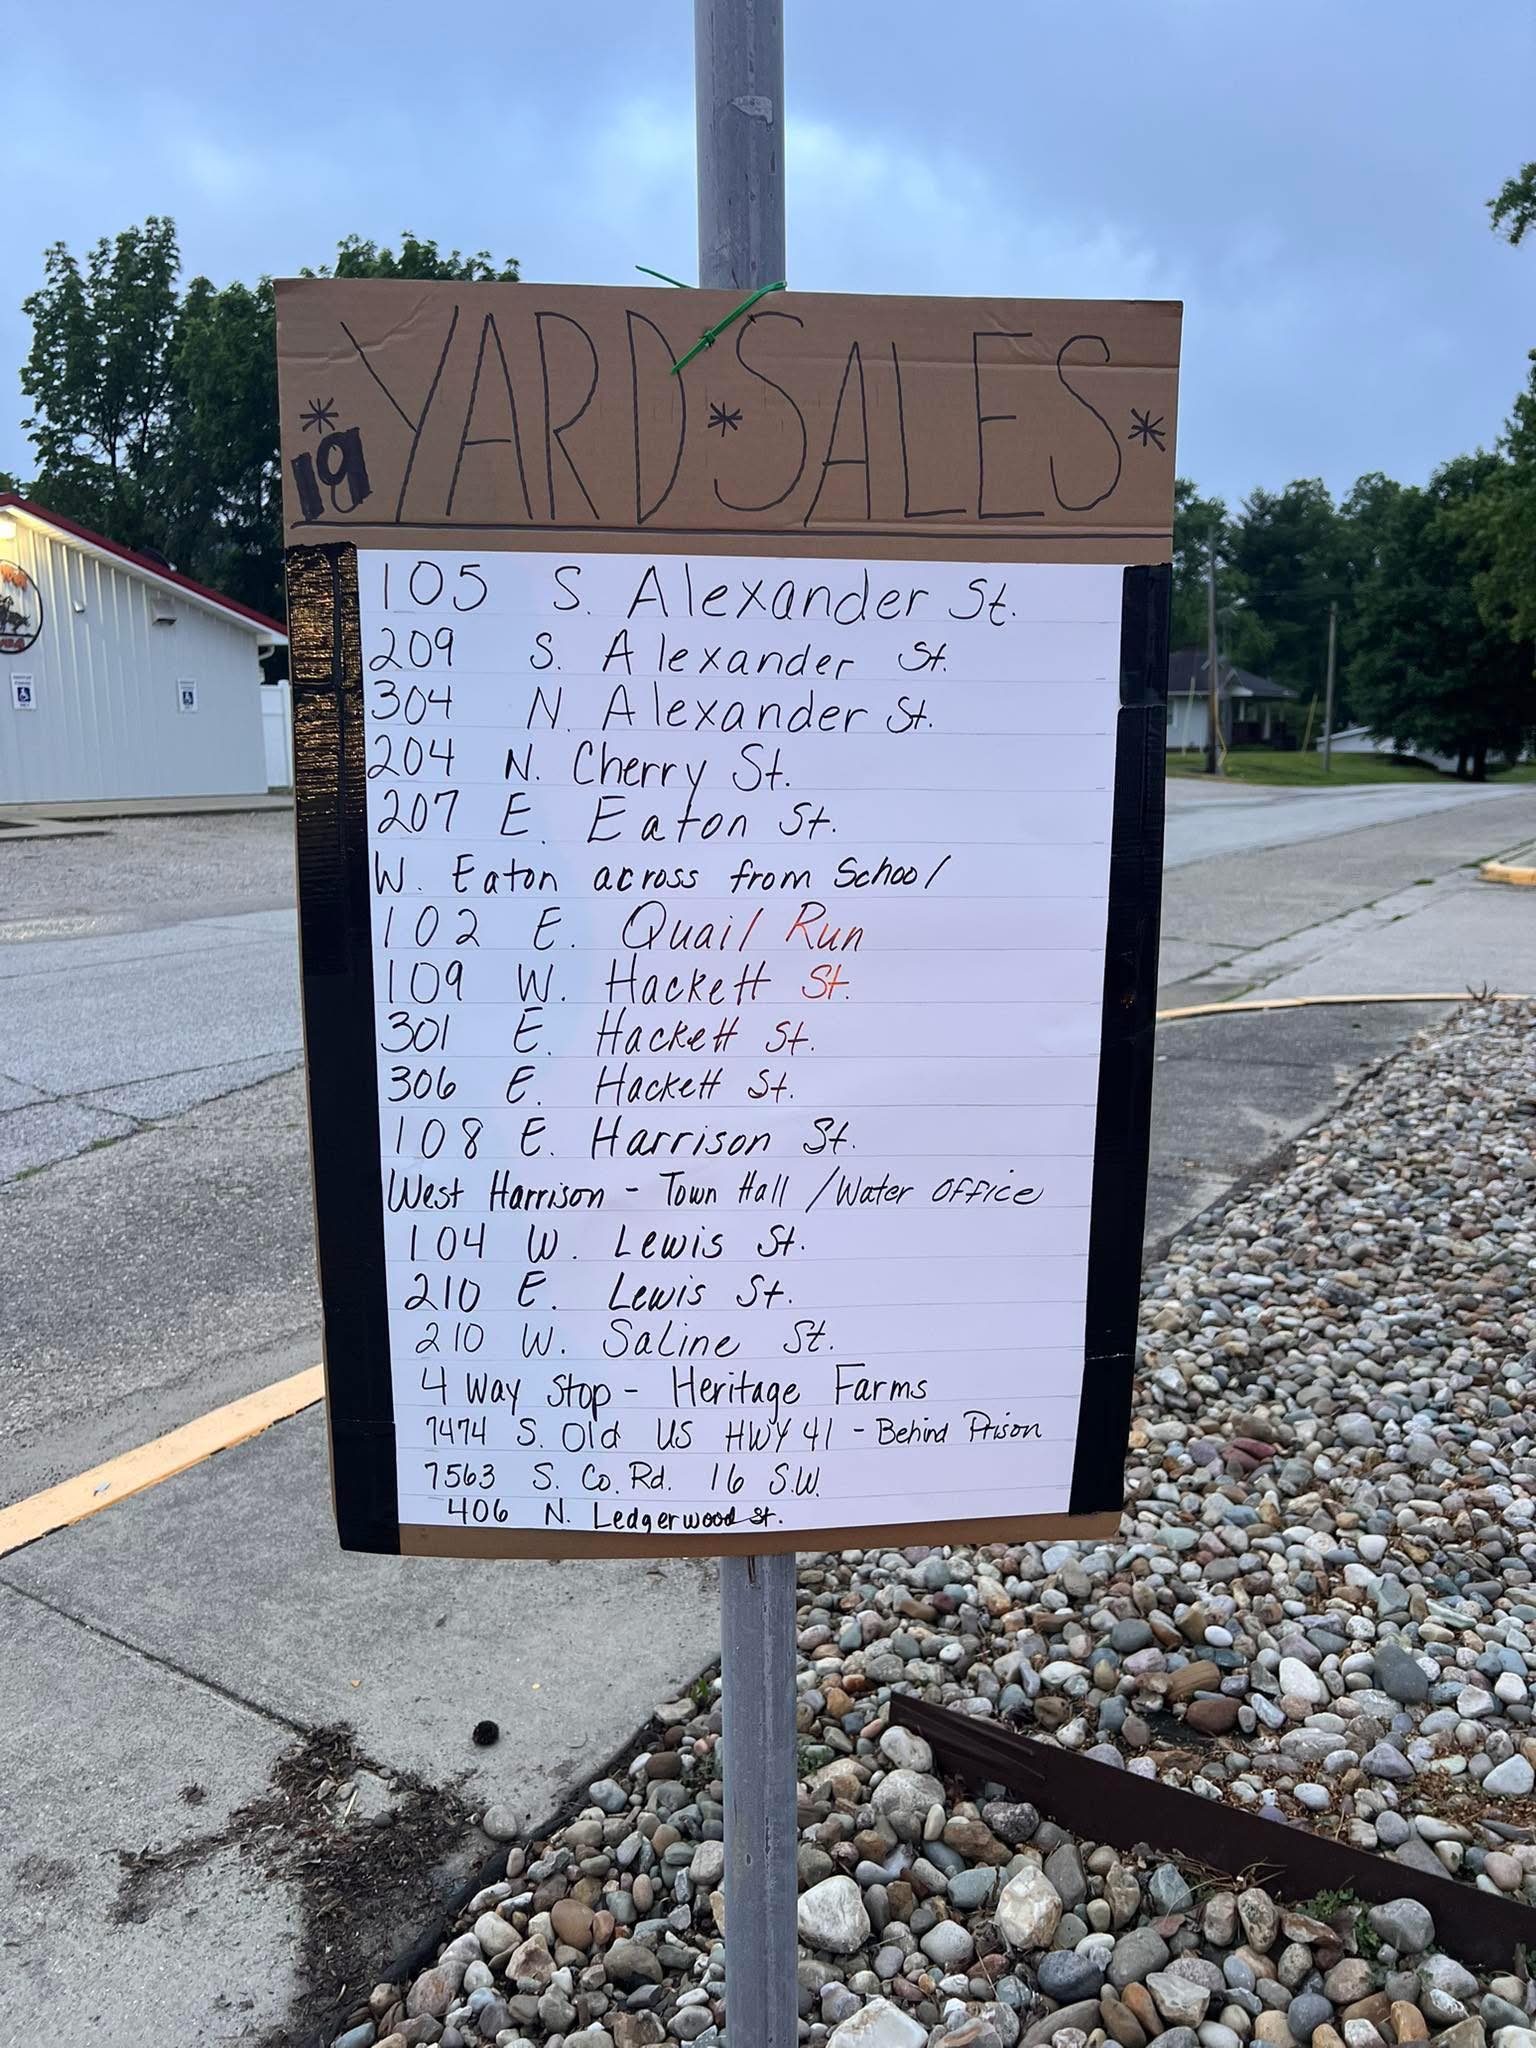 * YARD * SALES *
19
105 S. Alexander St.
209 S. Alexander St.
304 N. Alexander St.
204 N. Cherry St.
207 E. Eaton St.
W. Eaton across from School
102 E. Quail Run
109 W. Hackett St.
301 E. Hackett St.
306 E. Hackett St.
108 E. Harrison St.
West Harrison - Town Hall / Water Office
104 W. Lewis St.
210 E. Lewis St.
210 W. Saline St.
4 Way Stop - Heritage Farms
7474 S. Old US HWY 41 - Behind Prison
7563 S. Co. Rd. 16 S.W.
406 N. Ledgerwood St.